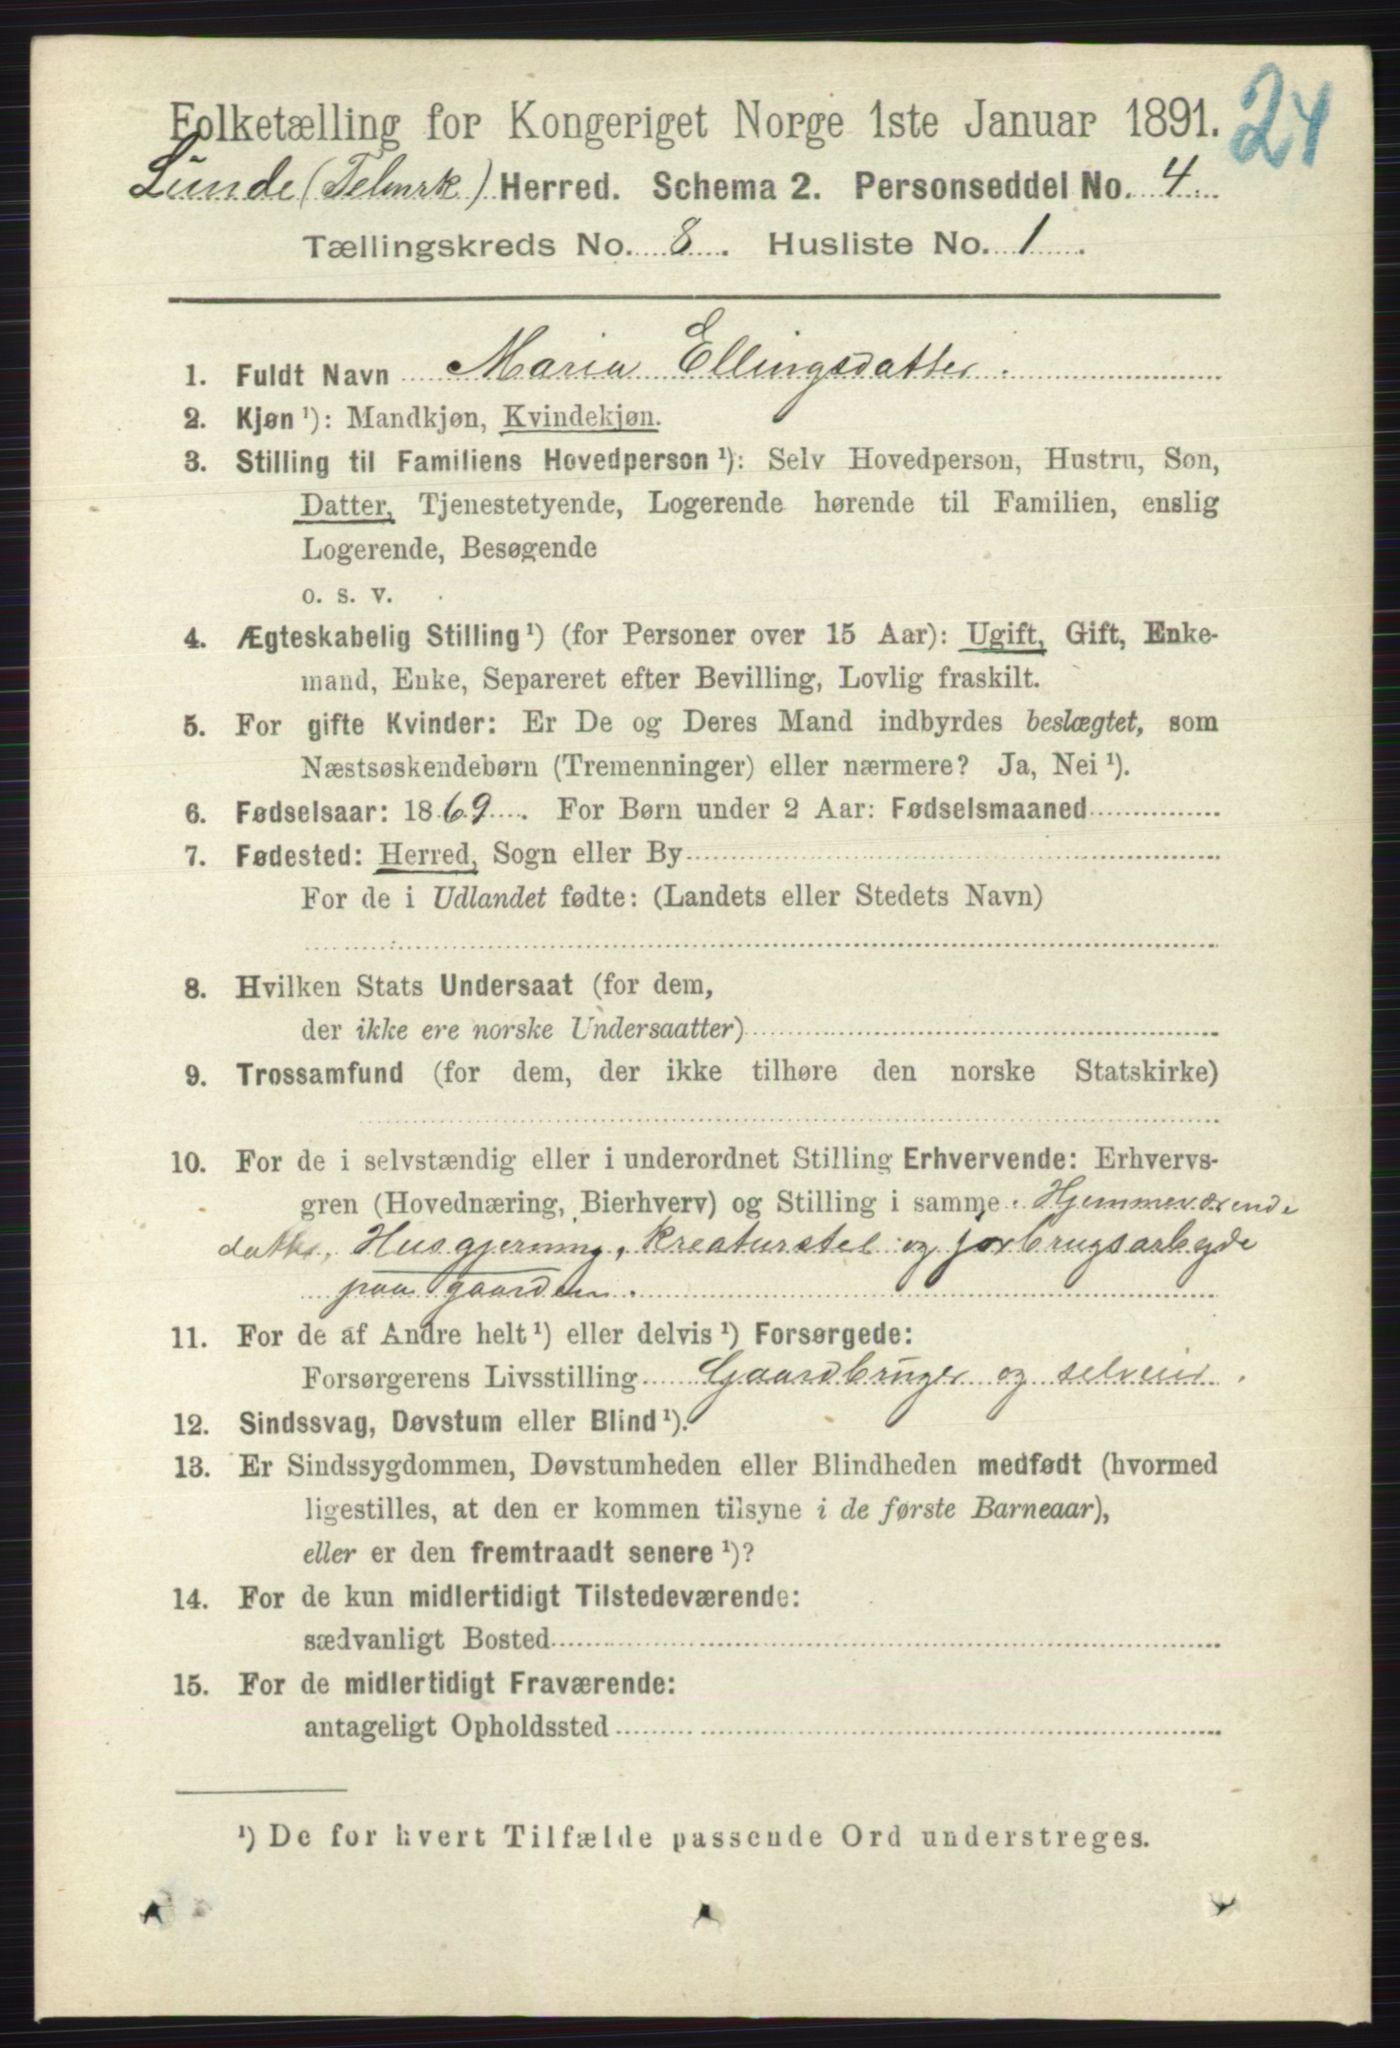 24
Folketælling for Kongeriget Norge 1ste Januar 1891.
Lunde (Telmrk) Herred. Schema 2. Personseddel No. 4
Tællingskreds No. 8. Husliste No. 1.
1. Fuldt Navn Maria Ellingsdatter.
2. Kjøn ¹): Mandkjøn, Kvindekjøn.
3. Stilling til Familiens Hovedperson ¹): Selv Hovedperson, Hustru, Søn,
Datter, Tjenestetyende, Logerende hørende til Familien, enslig
Logerende, Besøgende
o. s. v.
4. Ægteskabelig Stilling ¹) (for Personer over 15 Aar): Ugift, Gift, Enke-
mand, Enke, Separeret efter Bevilling, Lovlig fraskilt.
5. For gifte Kvinder: Er De og Deres Mand indbyrdes beslægtet, som
Næstsøskendebørn (Tremenninger) eller nærmere? Ja, Nei ¹).
6. Fødselsaar: 1869. For Børn under 2 Aar: Fødselsmaaned
7. Fødested: Herred, Sogn eller By
For de i Udlandet fødte: (Landets eller Stedets Navn)
8. Hvilken Stats Undersaat (for dem,
der ikke ere norske Undersaatter)
9. Trossamfund (for dem, der ikke tilhøre den norske Statskirke)
10. For de i selvstændig eller i underordnet Stilling Erhvervende: Erhvervs-
gren (Hovednæring, Bierhverv) og Stilling i samme. Hjemmeværende
datter, Husgjerning, kreaturstel og jorbrugsarbeide
paa gaarden.
11. For de af Andre helt ¹) eller delvis ¹) Forsørgede:
Forsørgerens Livsstilling Gaardbruger og selveier.
12. Sindssvag, Døvstum eller Blind ¹).
13. Er Sindssygdommen, Døvstumheden eller Blindheden medfødt (hvormed
ligestilles, at den er kommen tilsyne i de første Barneaar),
eller er den fremtraadt senere ¹)?
14. For de kun midlertidigt Tilstedeværende:
sædvanligt Bosted
15. For de midlertidigt Fraværende:
antageligt Opholdssted
¹) De for hvert Tilfælde passende Ord understreges.